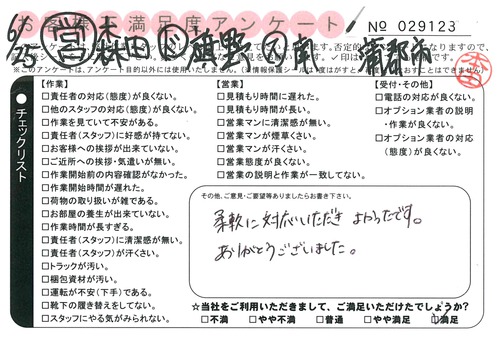 お客様大満足度アンケート
No 029123
6/25 営 森田 蒲郡市
※このアンケートは、アンケート目的以外には使用いたしません。
チェックリスト
【作業】
□責任者の対応(態度)が良くない。
□他のスタッフの対応(態度)が良くない。
□作業を見ていて不安がある。
□責任者(スタッフ)に好感が持てない。
□お客様への挨拶が出来ていない。
□ご近所への挨拶・気遣いが無い。
□作業開始前の内容確認がなかった。
□作業開始時間が遅れた。
□荷物の取り扱いが雑である。
□お部屋の養生が出来ていない。
□作業時間が長すぎる。
□責任者(スタッフ)に清潔感が無い。
□責任者(スタッフ)が汗くさい。
□トラックが汚い。
□梱包資材が汚い。
□運転が不安(下手)である。
□靴下の履き替えをしてない。
□スタッフにやる気がみられない。
【営業】
□見積もり時間に遅れた。
□見積もり時間が長い。
□営業マンに清潔感が無い。
□営業マンが煙草くさい。
□営業マンが汗くさい。
□営業態度が良くない。
□営業の説明と作業が一致してない。
【受付・その他】
□電話の対応が良くない。
□オプション業者の説明
・作業が良くない。
□オプション業者の対応
(態度)が良くない。
その他、ご意見・ご要望等ありましたらお書き下さい。
柔軟に対応いただきよかったです。
ありがとうございました。
☆当社をご利用いただきまして、ご満足いただけたでしょうか?
□不満 □やや不満 □普通 □やや満足 □満足